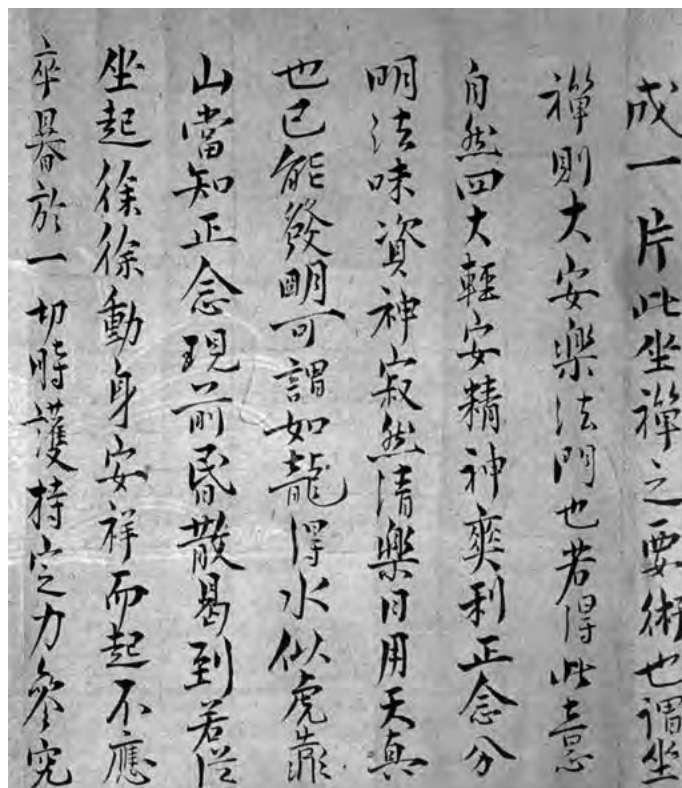 成一片此坐禪之要術也謂坐
禪則大安樂法門也若得此意
自然四大輕安精神爽利正念分
明法味資神寂然清樂日用天真
也已能發明可謂如龍得水似虎靠
山當知正念現前昏散曷到若從
坐起徐徐動身安祥而起不應
卒暴於一切時護持定力參究